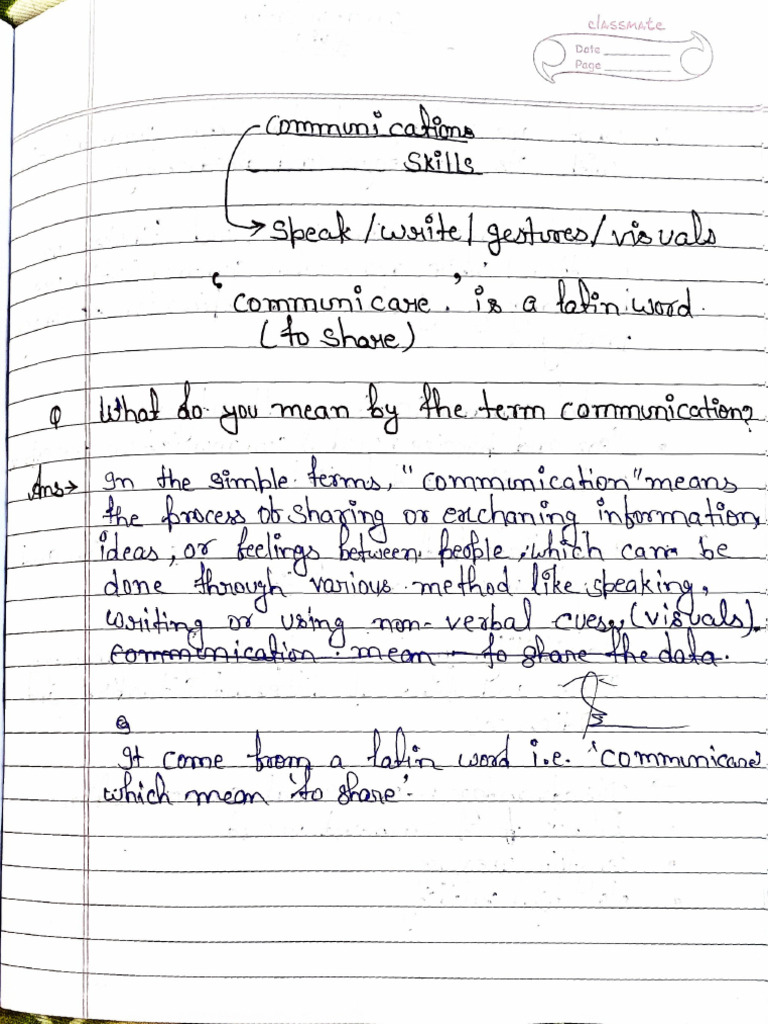 classmate
Date
Page
Communications
Skills
→ Speak / write / gestures / visuals
'communicare.' is a latin word.
(to share)
Q What do you mean by the term communication?
Ans→ In the simple terms, "communication" means
the process of sharing or exchaning information,
ideas, or feelings between people, which can be
done through various method like speaking,
writing or using non-verbal cues, (visuals).
communication mean to share the data.
It come from a latin word i.e. 'communicare'
which mean 'to share'.